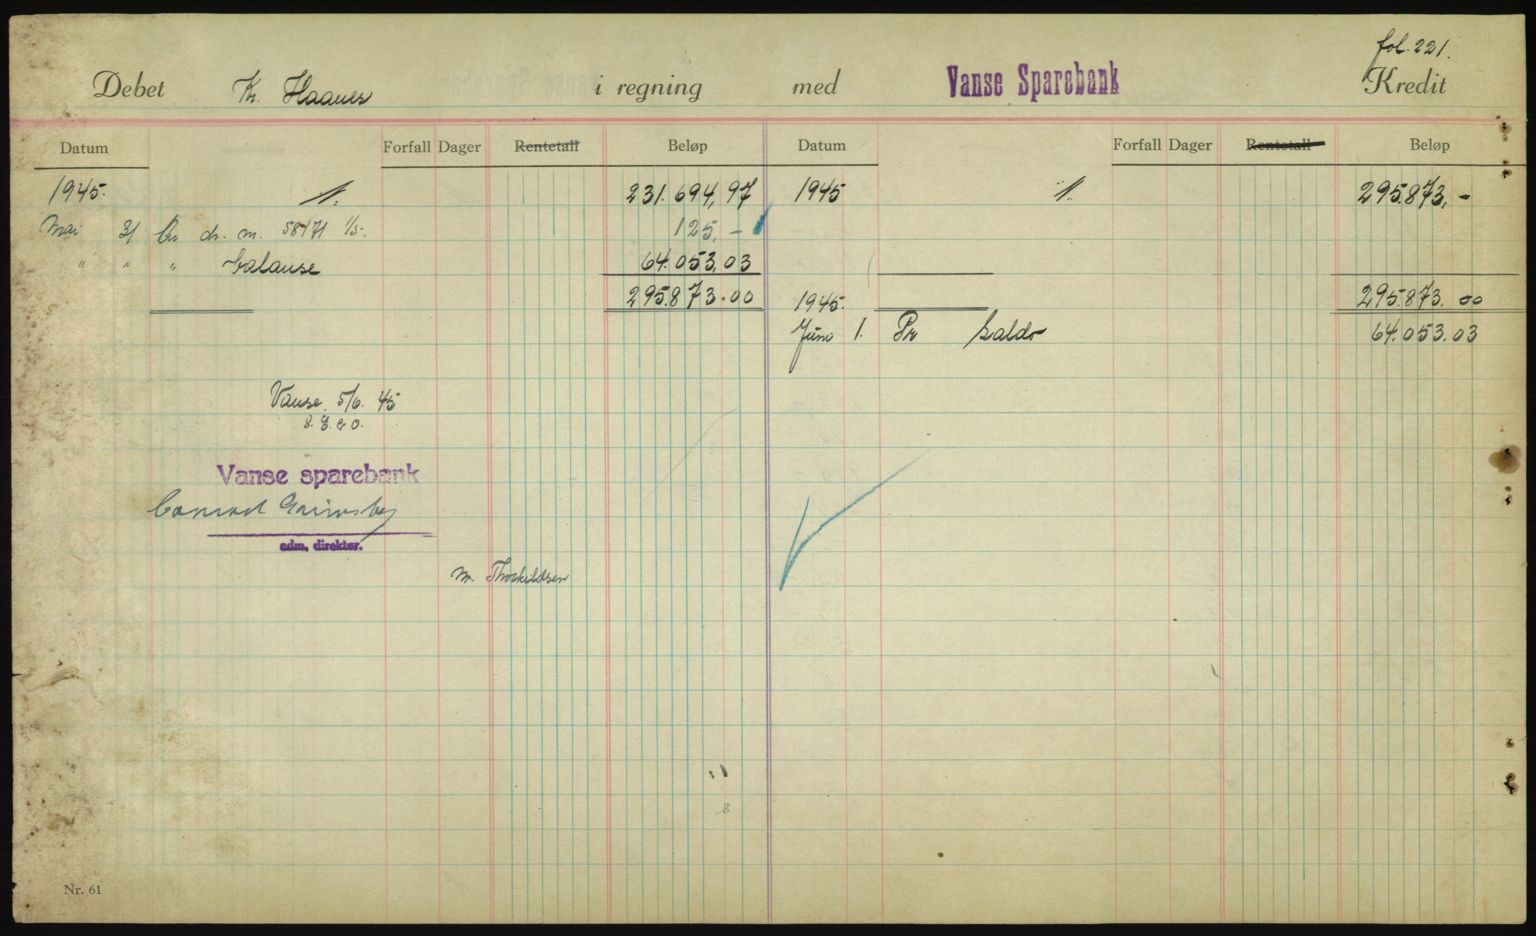 fol. 221.
Debet Kr. Haanes i regning med Vanse Sparebank Kredit
Datum Forfall Dager Rentetall Beløp Datum Forfall Dager Rentetall Beløp
1945. 231.694,97 1945 295.873,-
Mai 31 dr. m. 58171 1/5. 125,-
" " " balanse 64.053,03
295.873.00 1945. 295.873.00
Juno 1. Pr Saldo 64.053.03
Vanse 5/6. 45
Vanse sparebank
Conrad
adm. direktør.
M. Thorkildsen
8
Nr. 61